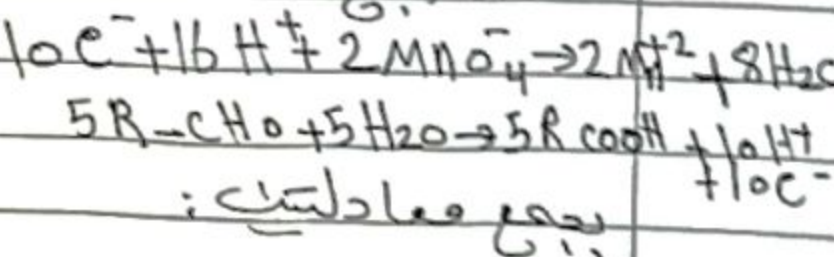 10e⁻+16H⁺+2MnO₄⁻→2M⁺²+8H₂O
5R-CHO+5H₂O→5RCOOH+10H⁺
+10e⁻
بجمع معادلتين: